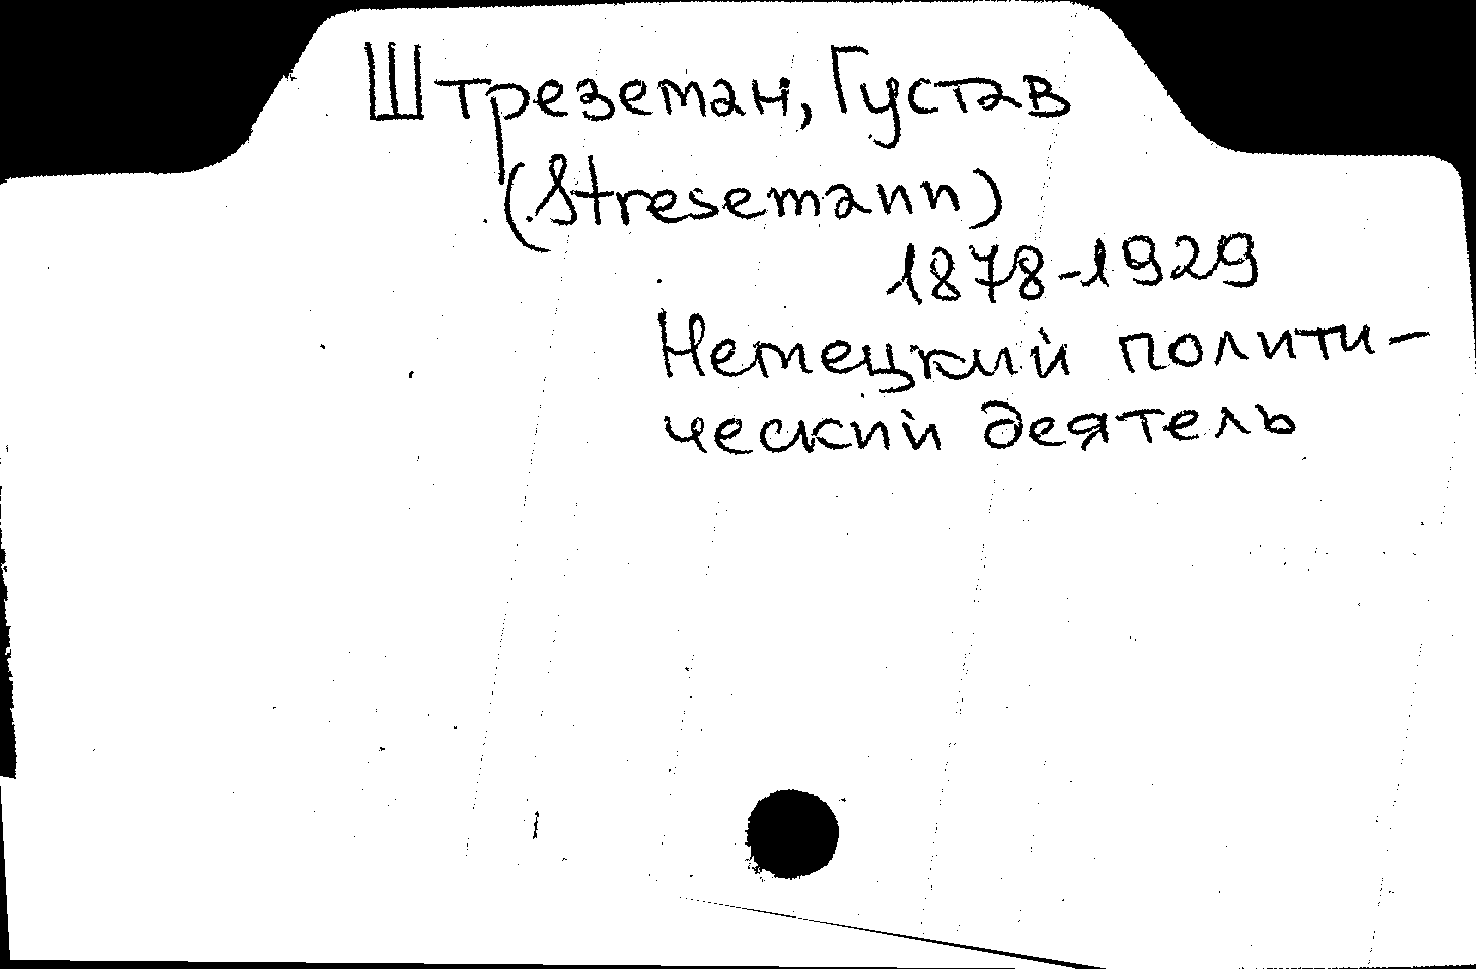 Штреземан, Густав
(Stresemann)
1878-1929
Немецкий полити-
ческий деятель